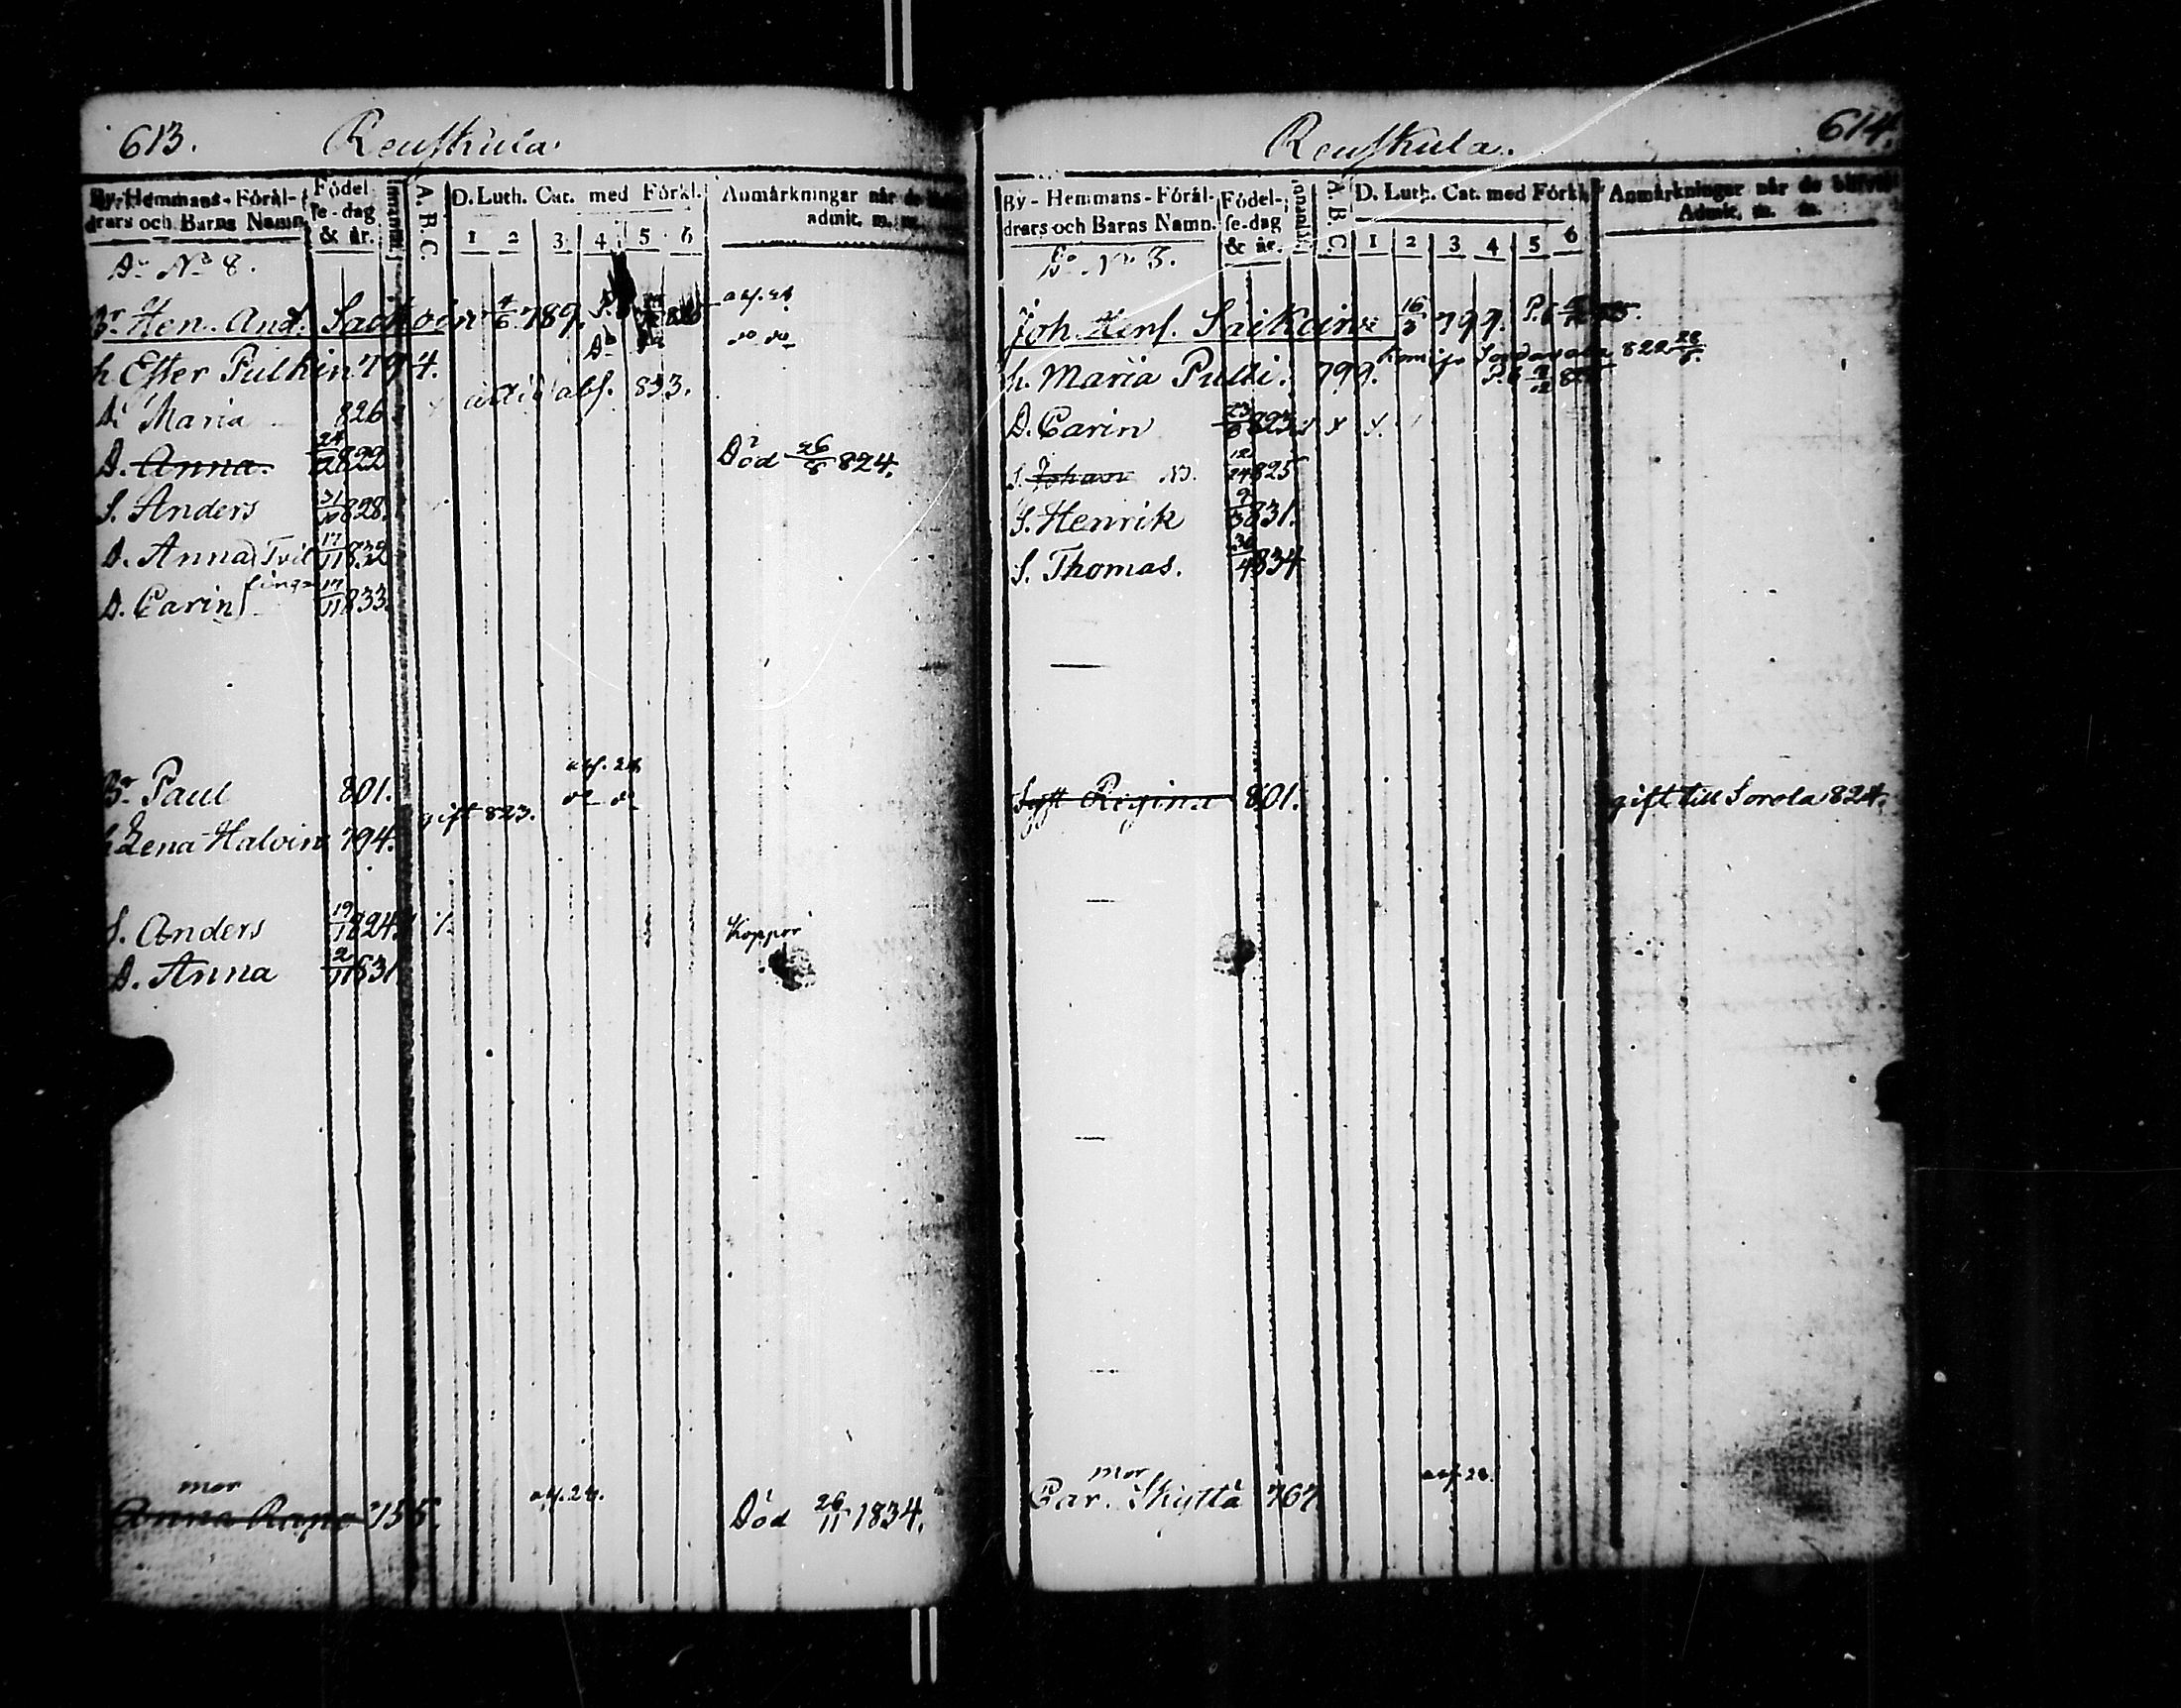 613. Reuskula.
By-Hemmans-Föräl-
drars och Barns Namn.
Födel
se-dag
& år.
A. B. C
D. Luth. Cat. med Förkl.
1 2 3 4 5 6
Anmärkningar när de
admit. m. m.
Do No 8.
Br. Hen. And. Saikoin 4/6 789. abs. 24
h. Ester Pulkin 794. Do do do
D. Maria 826 abs. 833.
D. Anna. 24/2 822 Död 26/8 824.
S. Anders 31/10 828.
D. Anna Tvil 17/11 832
lingar
D. Carin 17/11 833.
abs. 24
Br. Paul 801. gift 823. do do
h. Lena Halvoin 794.
S. Anders 19/1 824. Koppor
D. Anna 2/11 831
mor
Anna Rapo 755. abs. 24. Död 26/11 1834.
614.
Reuskula.
By-Hemmans-Föräl-
drars och Barns Namn.
Födel-
se-dag
& år.
A. B. C
D. Luth. Cat. med Förkl.
1 2 3 4 5 6
Anmärkningar när de blifvit
Admit. m. m.
Do No 3.
Joh. Hens. Saikoin 16/3 799.
h. Maria Pulli. 799. Sordavala 822 28/8.
D. Carin 23/8 823
S. Johan N. 12/24 825
S. Henrik 9/3 831.
S. Thomas. 30/4 834
Syst Regina 801. gift till Sorola 824.
mor
Car. Skyttä 767. abs. 24.